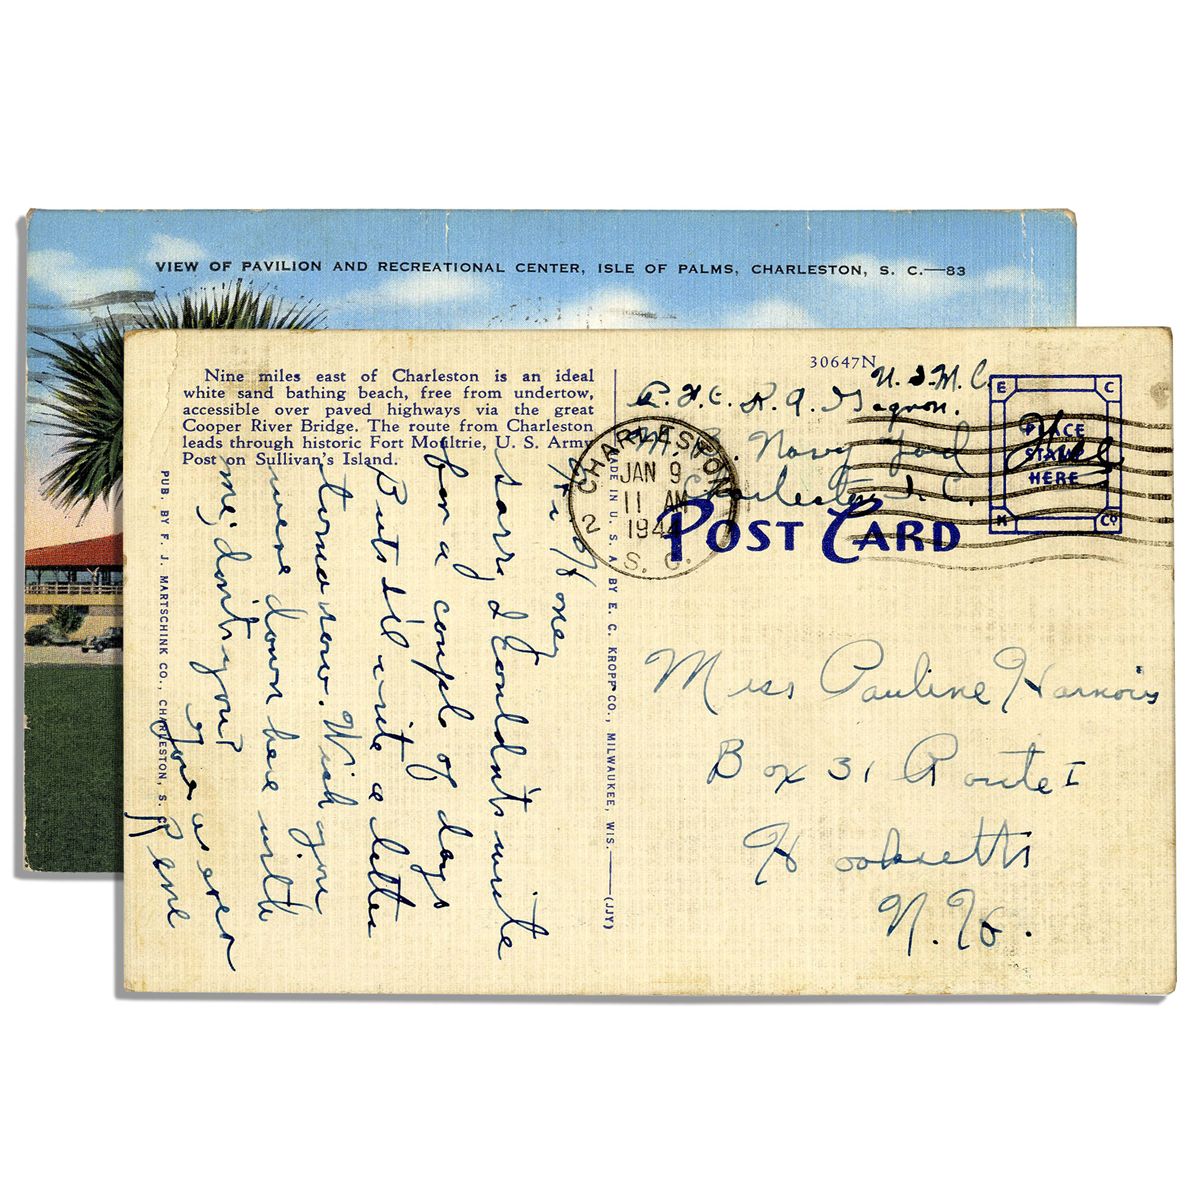 VIEW OF PAVILION AND RECREATIONAL CENTER, ISLE OF PALMS, CHARLESTON, S. C.—83
Nine miles east of Charleston is an ideal
white sand bathing beach, free from undertow,
accessible over paved highways via the great
Cooper River Bridge. The route from Charleston
leads through historic Fort Moultrie, U. S. Army
Post on Sullivan's Island.
PUB. BY F. J. MARTSCHINK CO., CHARLESTON, S. C.
Hi Honey
sorry I couldn't write
for a couple of days
But I'll write a letter
tomorow. Wish you
were down here with
me, don't you?
Your as ever
Rene
MADE IN U. S. A. BY E. C. KROPP CO., MILWAUKEE, WIS.—(JJY)
30647N
U.S.M.C.
P.F.C. R. A. Gagnon.
Navy Yard
Charleston S. C.
Free
CHARLESTON
JAN 9
11 AM
194
2 S. C.
POST CARD
E C
PLACE
STAMP
HERE
K CO
Miss Pauline Harnois
Box 31 Route 1
Hooksett
N. H.